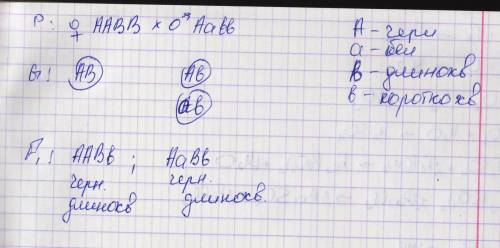 P: ♀ AABB × ♂ Aaвв
G: AB Aв
ав
F₁: AABв ; AaBв
черн. черн.
длинохв длинохв.
A - черн
a - бел
B - длинохв
в - короткохв